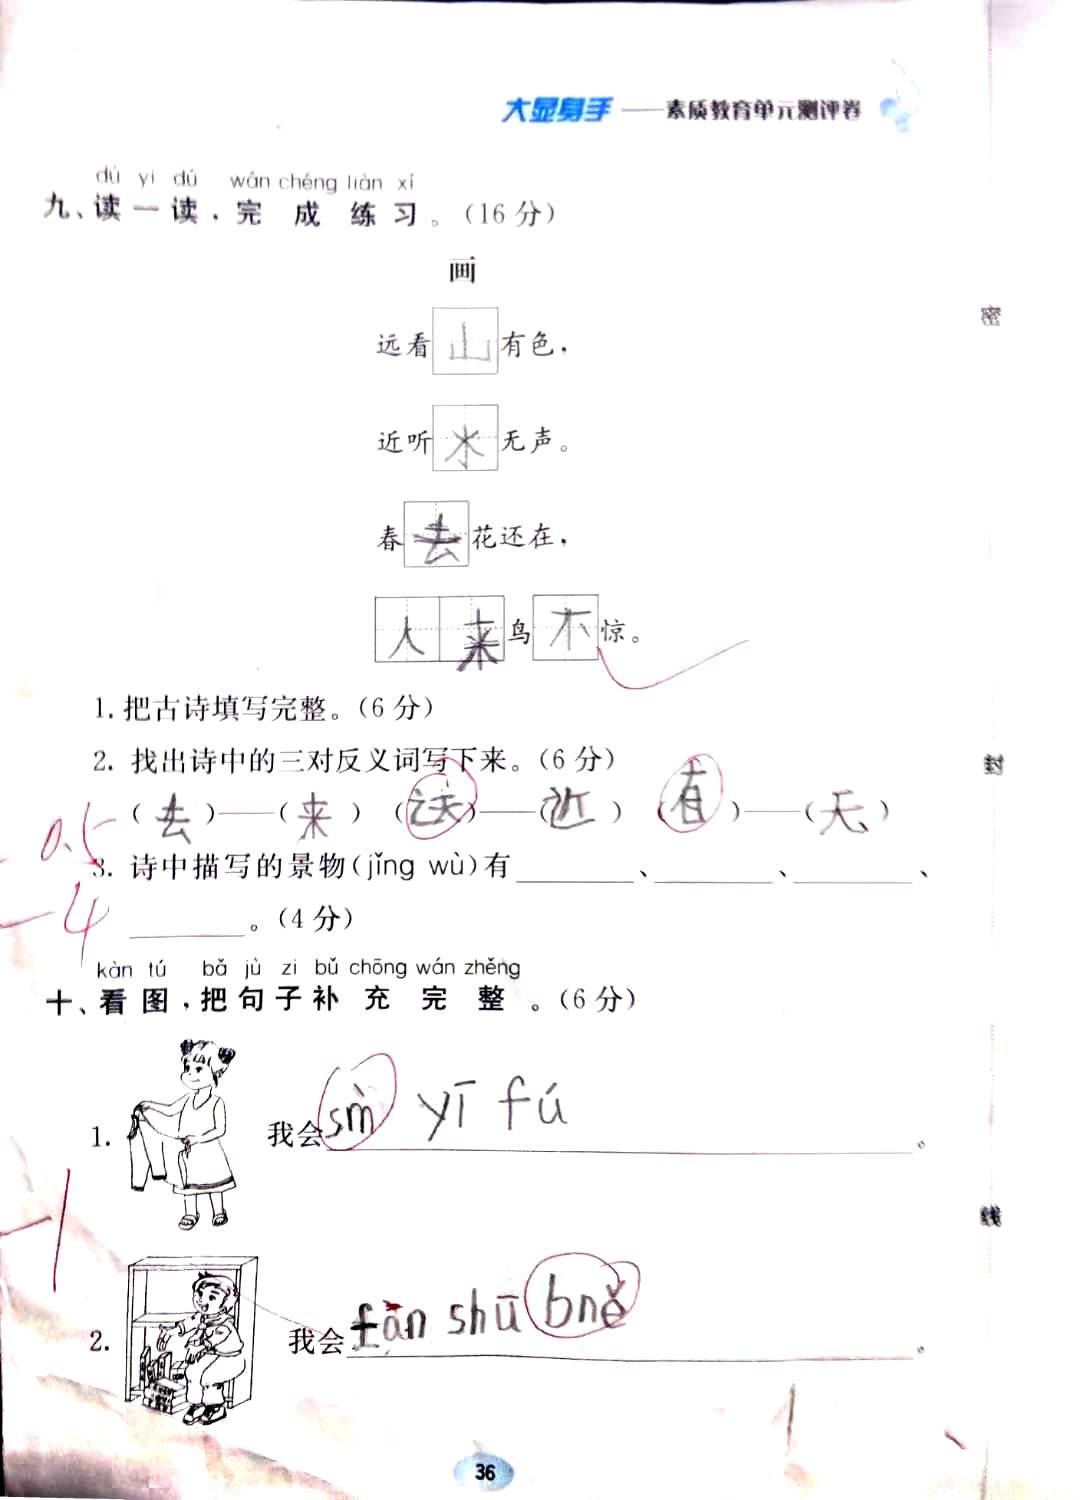 大显身手——素质教育单元测评卷
dú yi dú wán chéng liàn xí
九、读一读，完成练习。（16分）
画
远看山有色，
近听水无声。
春去花还在，
人来鸟不惊。
1.把古诗填写完整。（6分）
2. 找出诗中的三对反义词写下来。（6分）
（去）——（来）（远）——（近）（有）——（无）
-0.5
3. 诗中描写的景物（jǐng wù）有________、________、________、
________。（4分）
-4
kàn tú bǎ jù zi bǔ chōng wán zhěng
十、看图，把句子补充完整。（6分）
1. 我会 yī fú。
-1
2. 我会fān shū bně。
36
密
封
线